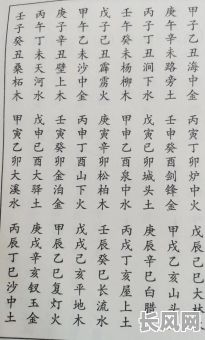 甲子乙丑海中金
庚午辛未路旁土
丙子丁丑涧下水
壬午癸未杨柳木
戊子己丑霹雳火
甲午乙未沙中金
庚子辛丑壁上土
丙午丁未天河水
壬子癸丑桑柘木
丙寅丁卯炉中火
壬申癸酉剑锋金
戊寅己卯城头土
甲申乙酉泉中水
庚寅辛卯松柏木
丙申丁酉山下火
壬寅癸卯金泊金
戊申己酉大驿土
甲寅乙卯大溪水
戊辰己巳大林
甲戌乙亥山头
庚辰辛巳白腊
丙戌丁亥屋上土
壬辰癸巳长流水
戊戌己亥平地木
甲辰乙巳复灯火
庚戌辛亥钗玉金
丙辰丁巳沙中土
长风网